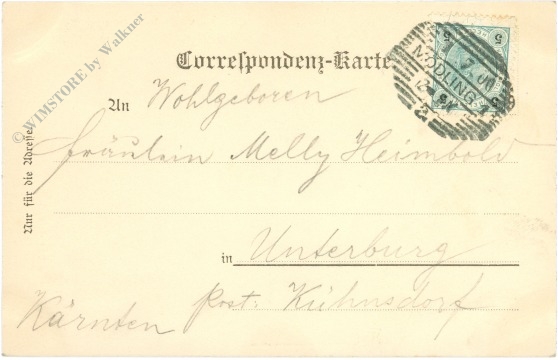 Correspondenz-Karte
An Wohlgeboren
Fräulein Melly Heimbold
in Unterburg
Post: Kühnsdorf
Kärnten
Nur für die Adresse.
© WIMSTORE by Walkner
MÖDLING
2
5 5